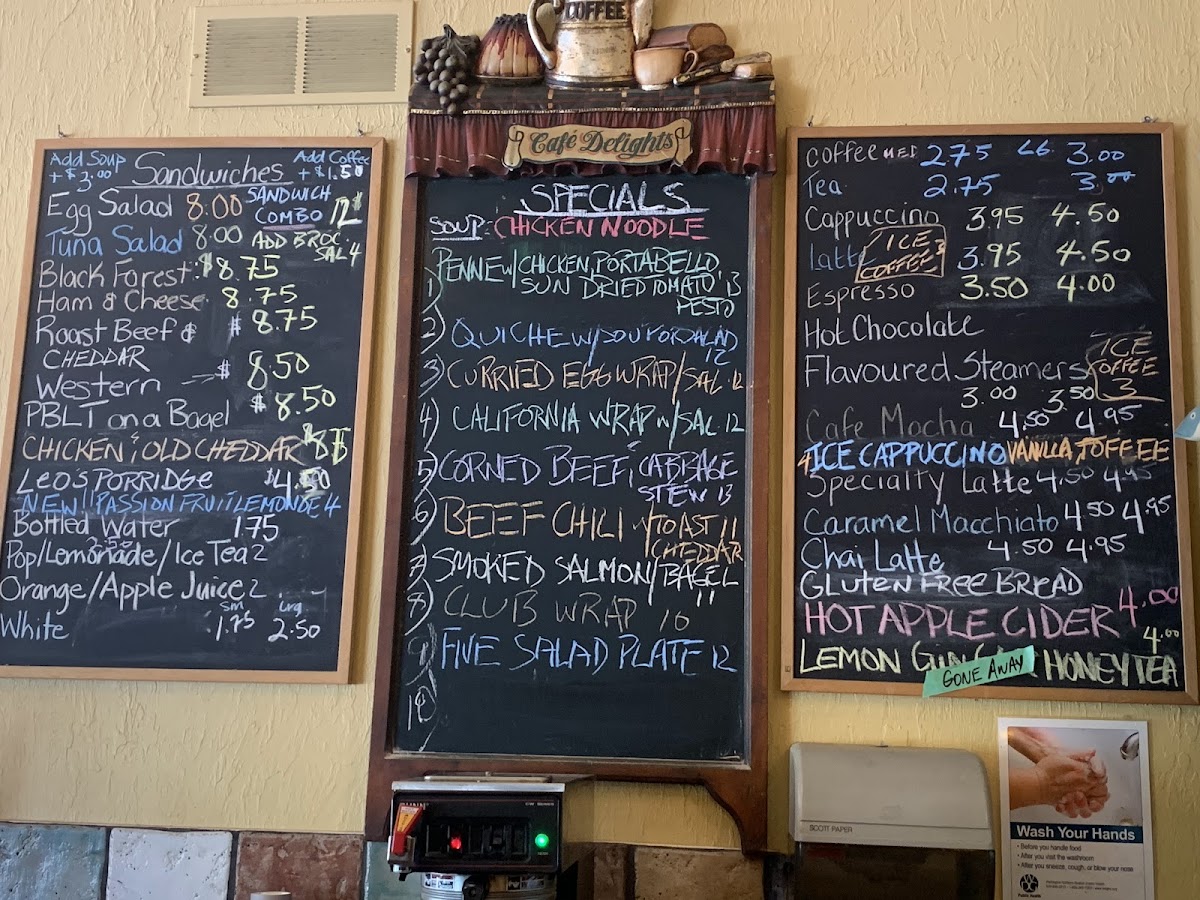 COFFEE
Café Delights
Add Soup
+ $3.00
Sandwiches
Add Coffee
+ $1.50
Egg Salad 8.00
SANDWICH
COMBO 12$
Tuna Salad 8.00
ADD BROC.
SAL 4
Black Forest $8.75
Ham & Cheese 8.75
Roast Beef & $8.75
CHEDDAR
Western $8.50
PBLT on a Bagel $8.50
CHICKEN & OLD CHEDDAR
LEO'S PORRIDGE $4.50
NEW!! PASSION FRUIT LEMONDE 4
Bottled Water 1.75
Pop/Lemonade/Ice Tea 2
Orange/Apple Juice 2
Sm Lrg
White 1.75 2.50
SPECIALS
SOUP: CHICKEN NOODLE
1) PENNE w/ CHICKEN, PORTABELLO,
SUN DRIED TOMATO 13
PESTO
2) QUICHE w/ SOUP OR SALAD
12
3) CURRIED EGG WRAP/SAL 12
4) CALIFORNIA WRAP w/SAL 12
5) CORNED BEEF & CABBAGE
STEW 13
6) BEEF CHILI w/TOAST 11
CHEDDAR
7) SMOKED SALMON/BAGEL
11
8) CLUB WRAP 10
9) FIVE SALAD PLATE 12
10)
Coffee MED 2.75 LG 3.00
Tea 2.75 3.00
Cappuccino 3.95 4.50
Latte 3.95 4.50
ICE
COFFEE 3
Espresso 3.50 4.00
Hot Chocolate
Flavoured Steamers
3.00 3.50
ICE
COFFEE
3
Cafe Mocha 4.50 4.95
4 ICE CAPPUCCINO VANILLA, TOFFEE
Specialty Latte 4.50 4.95
Caramel Macchiato 4.50 4.95
Chai Latte 4.50 4.95
GLUTEN FREE BREAD
HOT APPLE CIDER 4.00
4.00
LEMON HONEY TEA
GONE AWAY
SCOTT PAPER
Wash Your Hands
• Before you handle food
• After you visit the washroom
• After you sneeze, cough, or blow your nose
Public Health